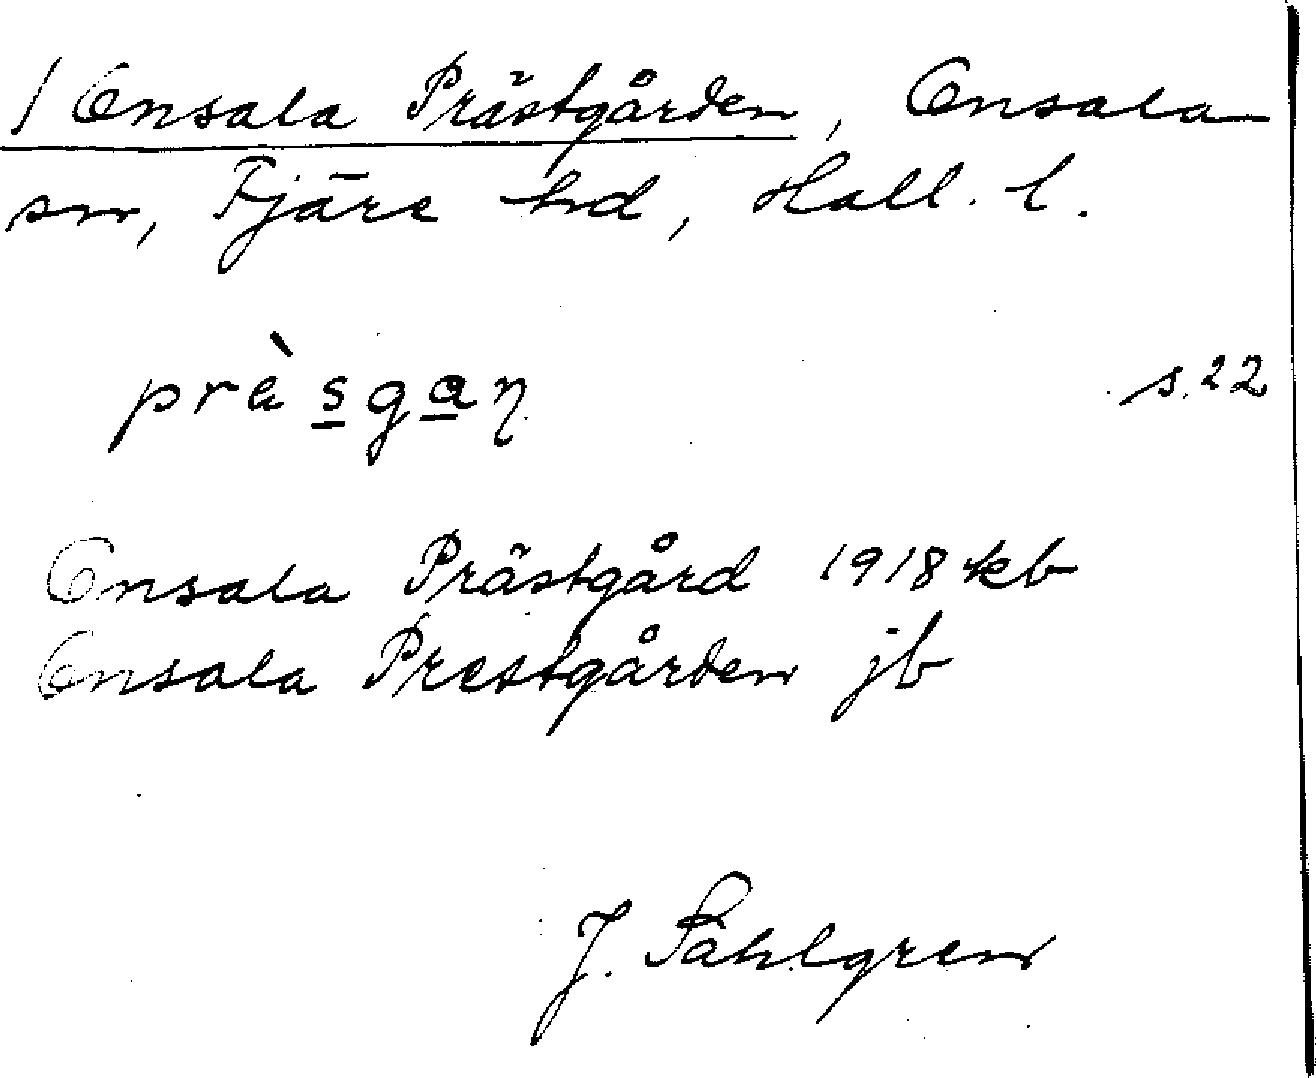 / Onsala Prästgården, Onsala
sn, Fjäre hd, Hall. l.
prèsgaŋ s. 22
Onsala Prästgård 1918 kb
Onsala Prestgården jb
J. Sahlgren